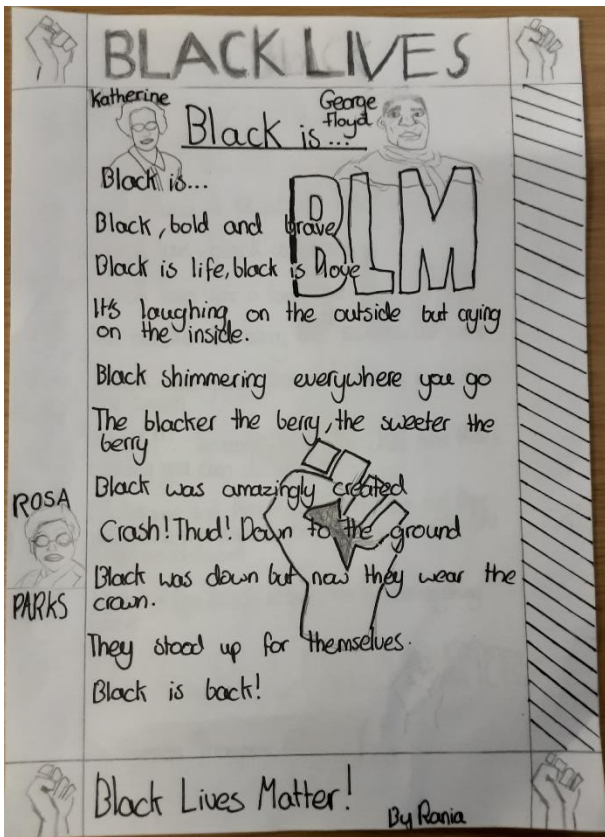 BLACK LIVES
Katherine
George
Floyd
Black is...
Black is...
BLM
Black, bold and brave
Black is life, black is love
It's laughing on the outside but crying
on the inside.
Black shimmering everywhere you go
The blacker the berry, the sweeter the
berry
Black was amazingly created
Crash! Thud! Down to the ground
Black was down but now they wear the
crown.
They stood up for themselves.
Black is back!
ROSA
PARKS
Black Lives Matter!
By Rania